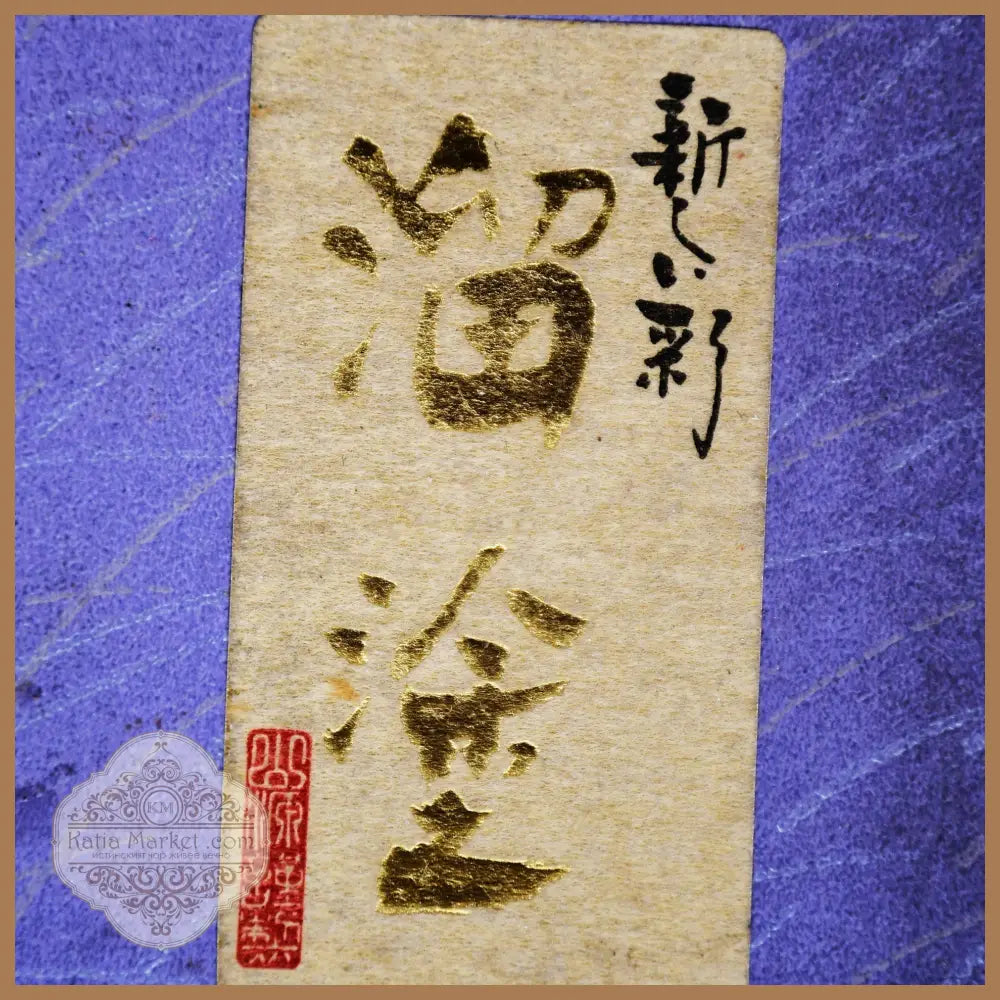 新しい彩
溜塗
KM
Katia Market .com
истинският чар живее вечно